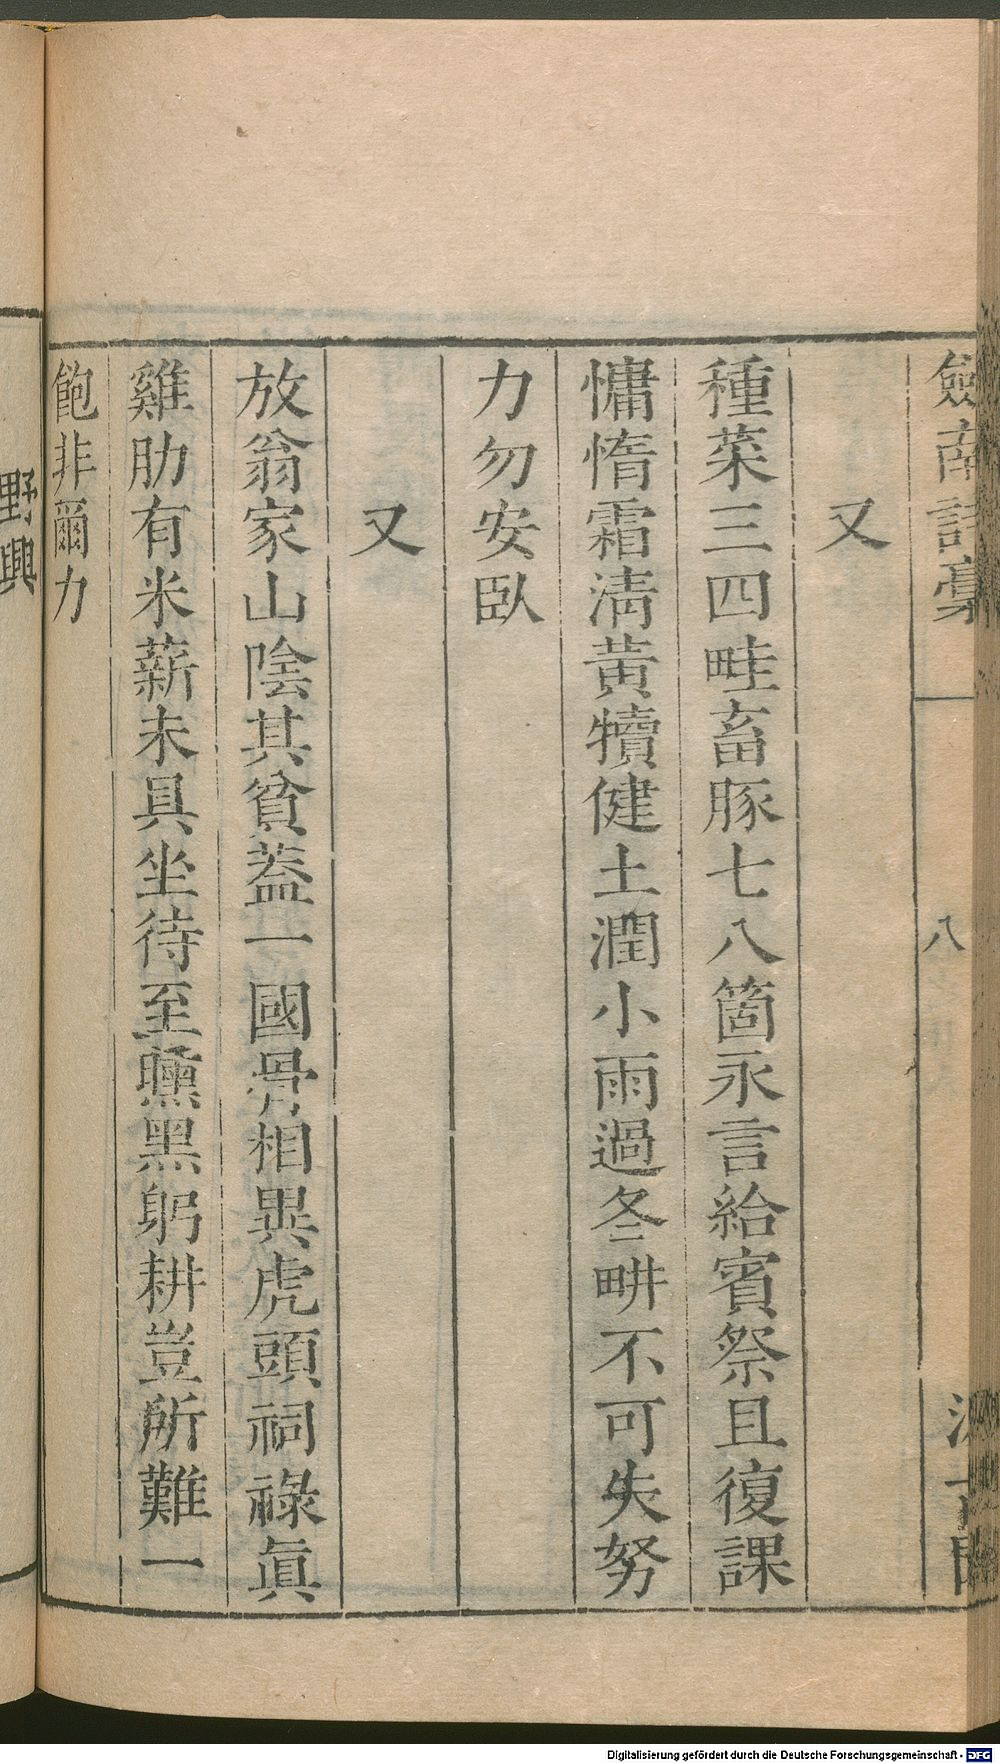 劍南詩稾
八
又
種菜三四畦畜豚七八箇永言給賓祭且復課
慵惰霜淸黃犢健土潤小雨過冬畊不可失努
力勿安臥
又
放翁家山陰其貧蓋一國骨相異虎頭祠祿眞
雞肋有米薪未具坐待至曛黑躬耕豈所難一
飽非爾力
野興
Digitalisierung gefördert durch die Deutsche Forschungsgemeinschaft - DFG